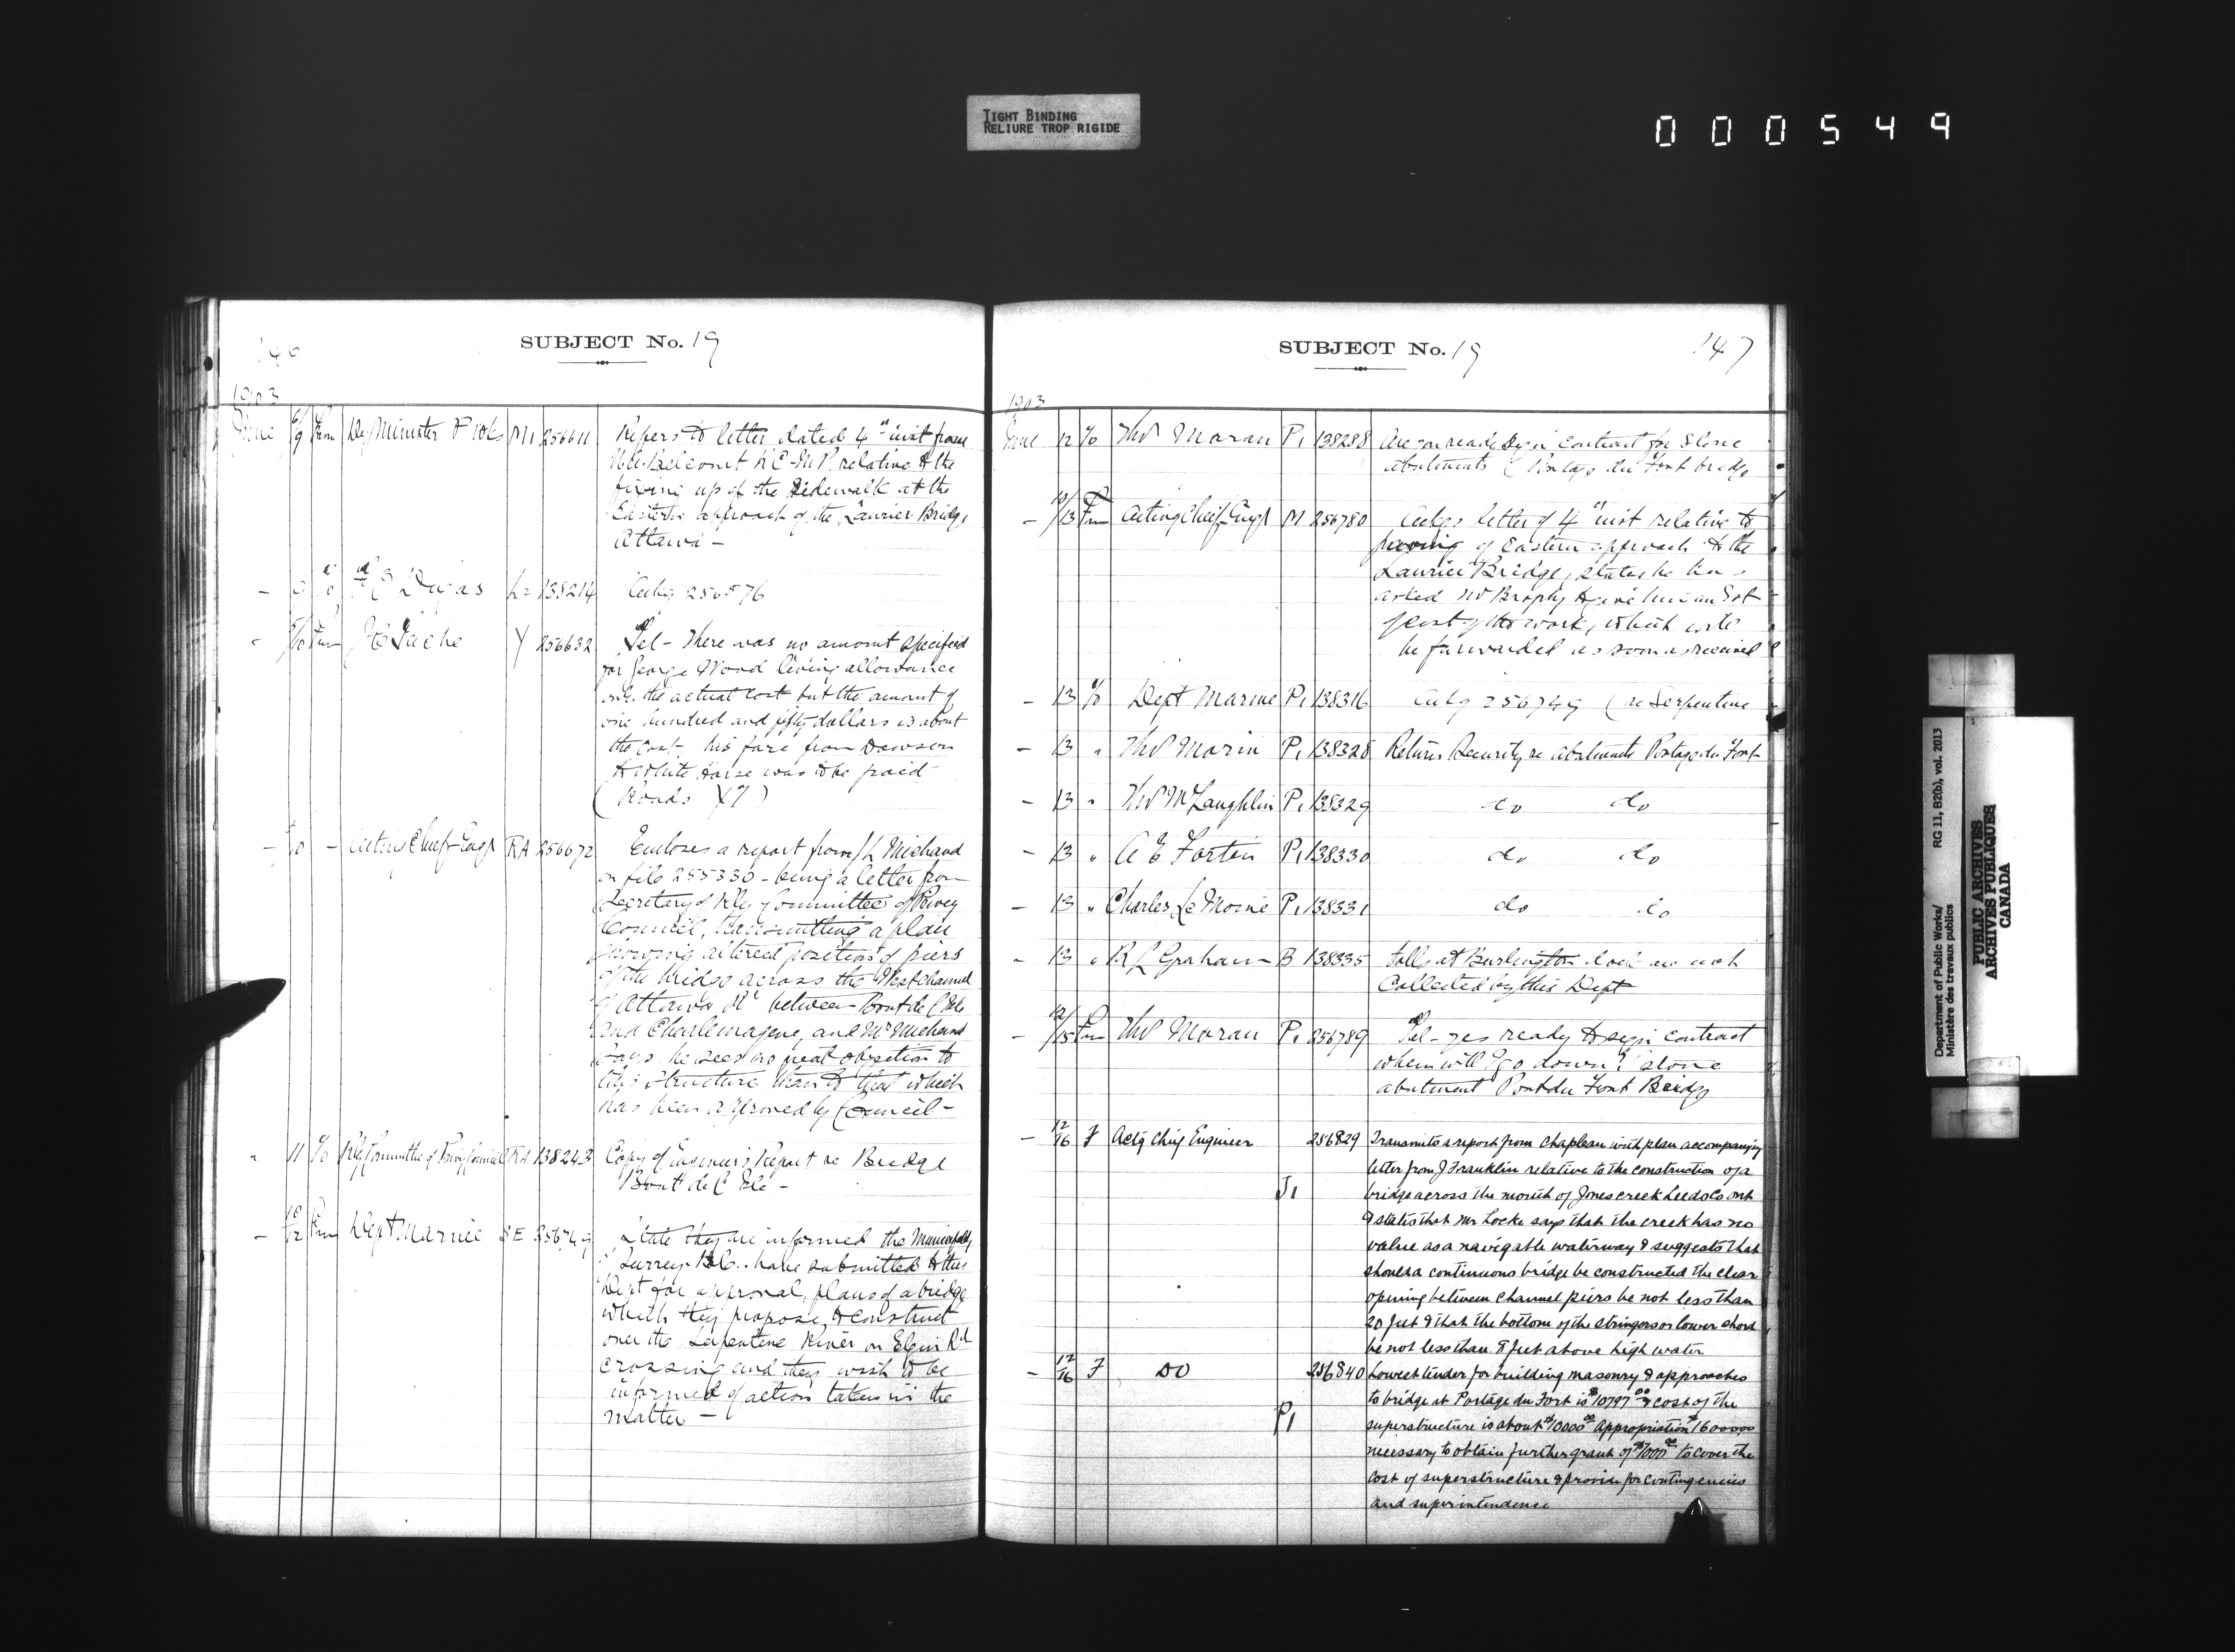 TIGHT BINDING
RELIURE TROP RIGIDE
000549
146
SUBJECT No. 19
1903
June 6/9 Frm Dy Minister P Wks M1 256611 Refers to letter dated 4th inst from
N A Belcourt KC-MP. relative to the
fixing up of the sidewalk at the
Eastern approach of the Laurier Bridge
Ottawa -
- C Dugas L2 138214 Ackg 256576
Frm J C Tache Y 256632 Tel - There was no amount specified
for George Wood living allowance
only the actual cost but the amount of
one hundred and fifty dollars is about
the cost his fare from Dawson
to White Horse was to be paid
(Roads Y.T)
- 10 - Acting Chief Engr RA 256672 Encloses a report from J L Michaud
on file 255330 - being a letter from
Secretary of Rly Committee of Privy
Council, transmitting a plan
showing altered position of piers
of the bridge across the West channel
of Ottawa Rr between Bout de l'Ile
and Charlemagne, and Mr Michaud
says he sees no great objection to
this structure than to that which
has been approved by Council -
" 11 To Rly Committee of Privy Council RA 138243 Copy of Engineer's Report re Bridge
Bout de l'Ile -
- 10/12 Frm Dept Marine SE 256749 State they are informed the Municipality
Surrey B.C. have submitted to this
Dept for approval, plans of a bridge
which they propose to construct
over the Serpentine River on Elgin Rd
crossing and they wish to be
informed of action taken in the
matter -
SUBJECT No. 19
147
1903
June 12 To Thos Moran P1 138288 Are you ready sign contract for stone
abutments Portage du Fort bridge
- 10/13 Frm Acting Chief Engr M 256780 Ackgs letter of 4th inst relative to
paving of Eastern approach to the
Laurier Bridge, states he has
asked Mr Brophy to give him an Est
of cost of the work, which will
be forwarded as soon as received
- 13 To Dept Marine P1 138316 Ackg 256749 (re Serpentine
- 13 " Thos Morin P1 138328 Return Security re abutments Portage du Fort
- 13 " Thos McLaughlin P1 138329 do do
- 13 " A E Fortin P1 138330 do do
- 13 " Charles Le Moine P1 138331 do do
- 13 " R L Graham B 138335 tolls at Burlington lock are not
Collected by this Dept
- 12/15 Frm Thos Moran P1 256789 Tel - yes ready to sign contract
when will I go down? stone
abutment Port du Fort Bridge
- 12/16 F Actg Chief Engineer 256829 Transmits a report from Chapleau with plan accompanying
letter from J Franklin relative to the construction of a
J1 bridge across the mouth of Jones creek Leeds Co Ont
& states that Mr Locke says that the creek has no
value as a navigable waterway & suggests that
should a continuous bridge be constructed the clear
opening between channel piers be not less than
20 feet & that the bottom of the stringers or lower chord
be not less than 8 feet above high water
- 12/16 F DO 256840 Lowest tender for building masonry & approaches
to bridge at Portage du Fort is $10797.00 & cost of the
P1 superstructure is about $10000.00 Appropriation $16000.00
necessary to obtain further grant of $7000.00 to cover the
cost of superstructure & provide for contingencies
and superintendence
Department of Public Works/ RG 11, B2(b), vol. 2013
Ministère des travaux publics
PUBLIC ARCHIVES
ARCHIVES PUBLIQUES
CANADA